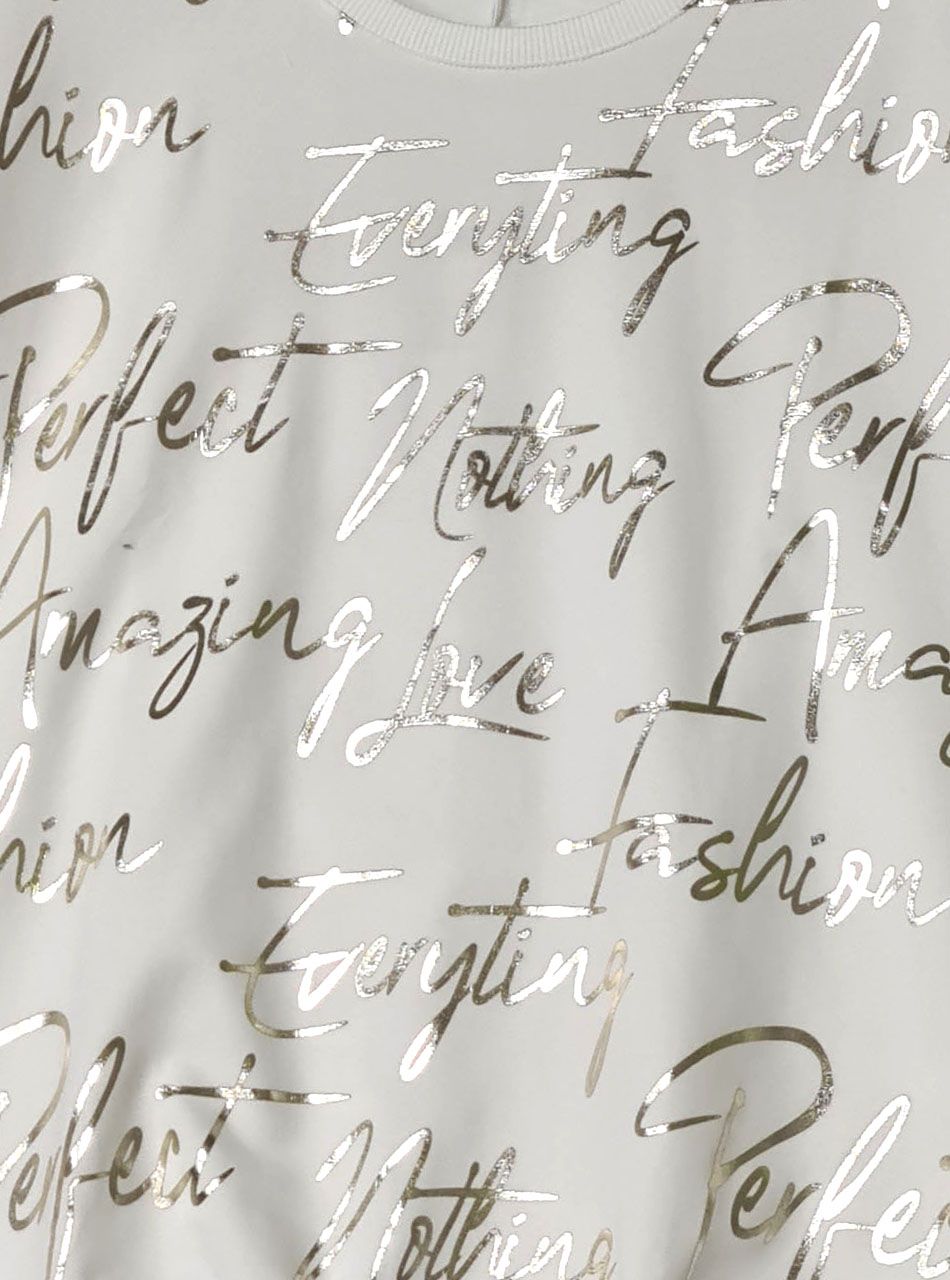 hion Fashio
Everyting
Perfect Nothing Perf
Amazing Love Ama
hion Fashion
Everyting
Perfect Nothing Perfec